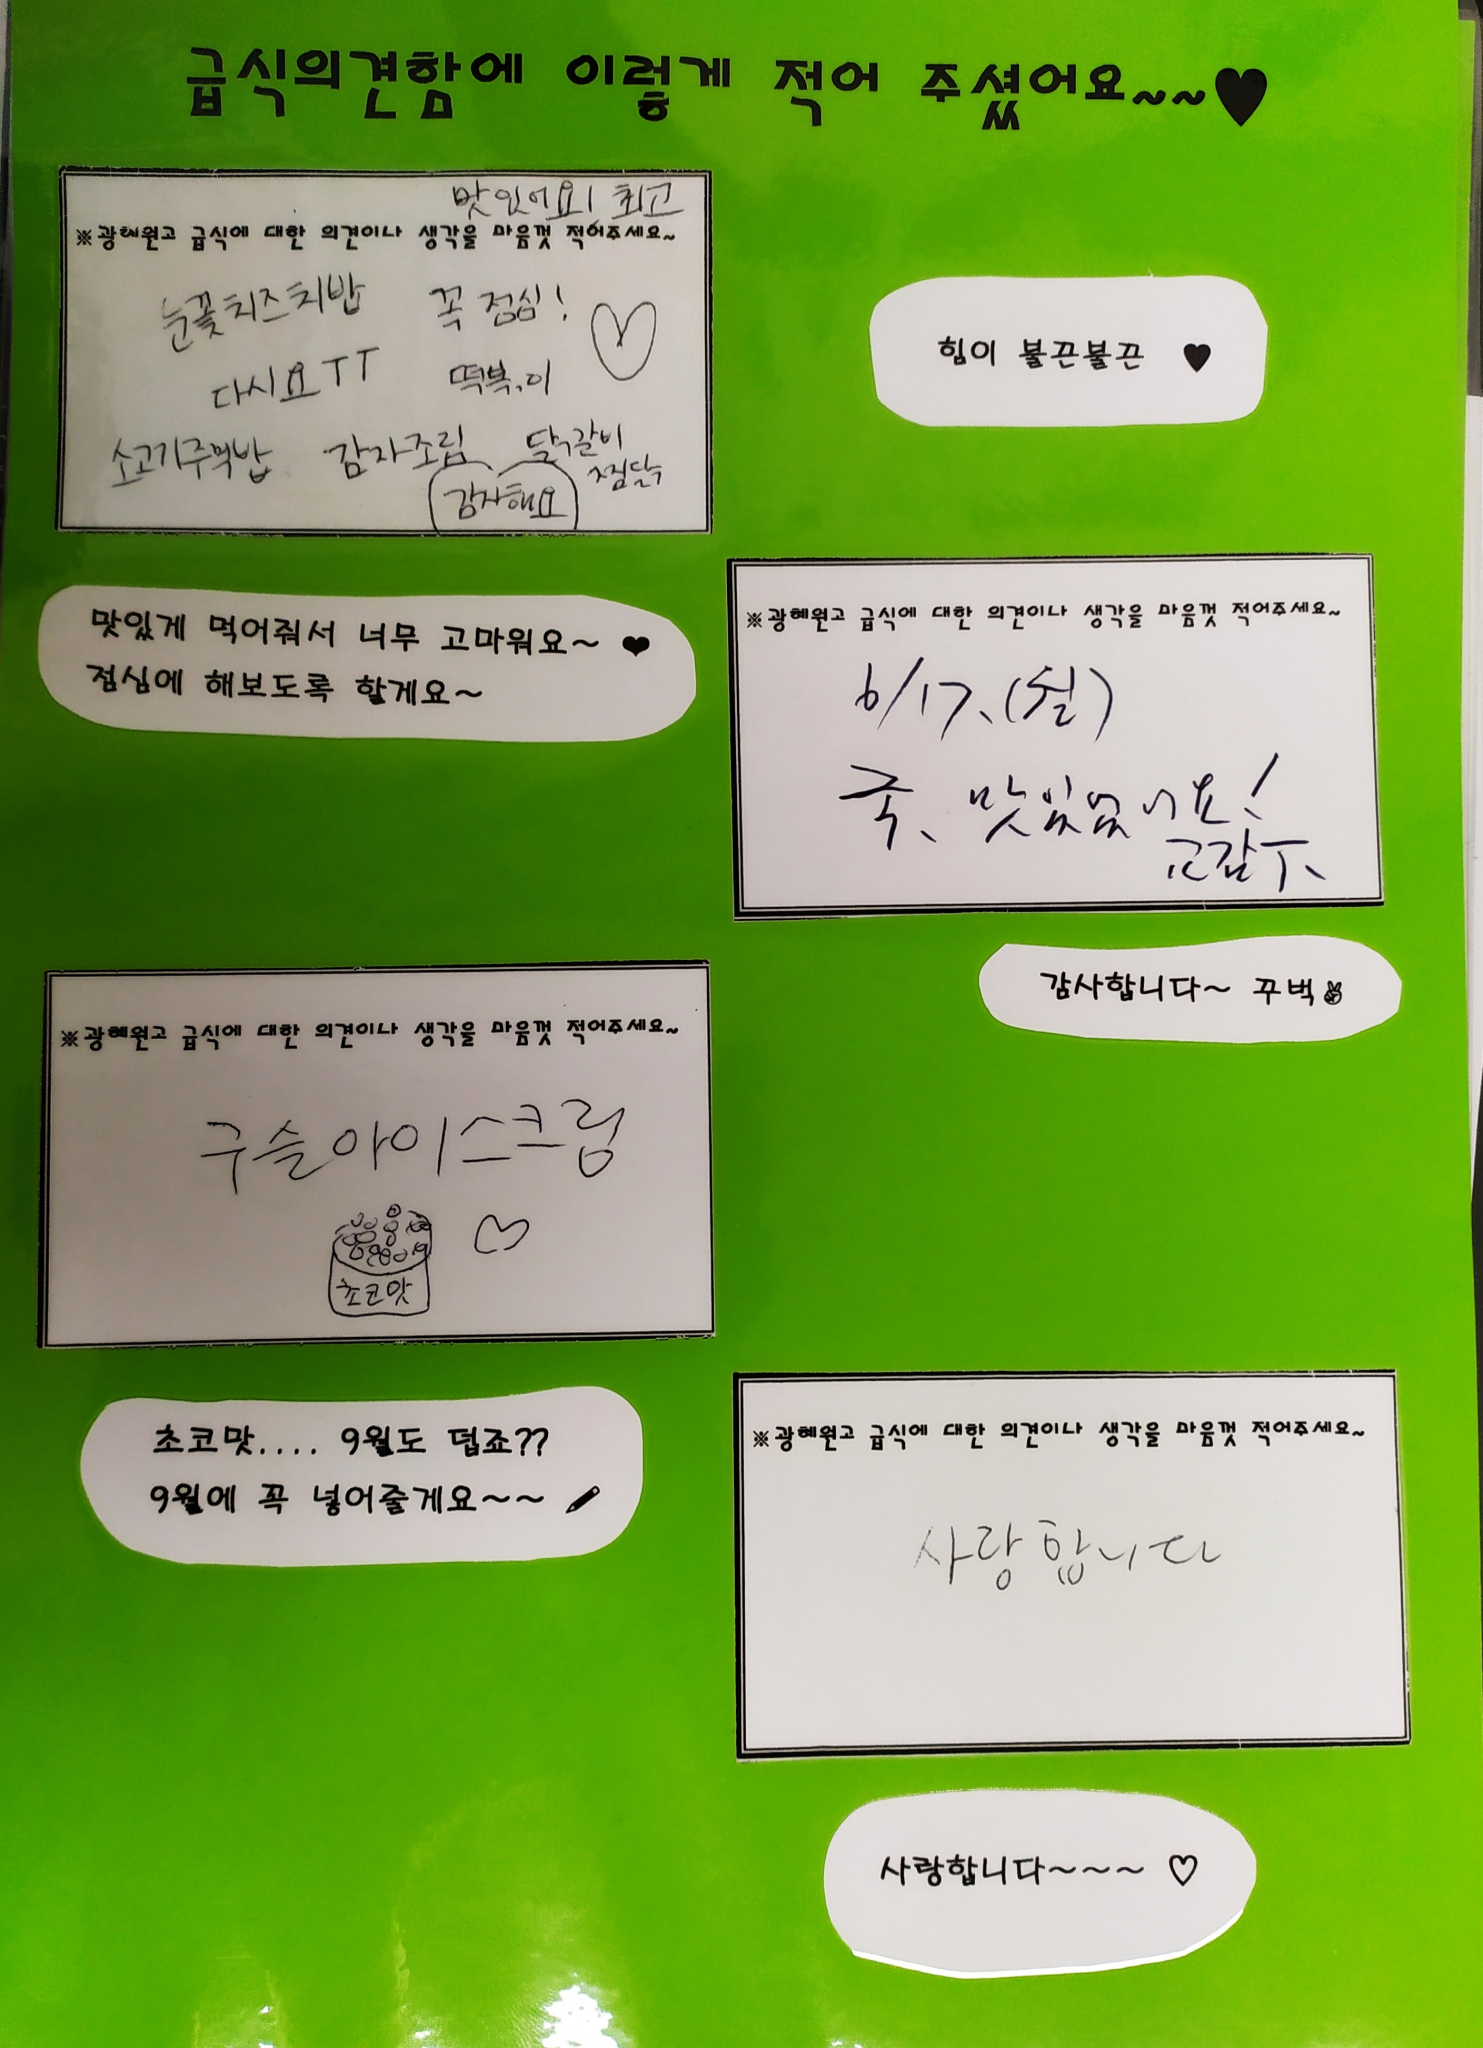 급식의견함에 이렇게 적어 주셨어요~~♥
맛있어요! 최고
※광혜원고 급식에 대한 의견이나 생각을 마음껏 적어주세요~
눈꽃치즈치밥 꼭 점심!
다시요TT 떡볶이
소고기주먹밥 감자조림 닭갈비
찜닭
감자해요
힘이 불끈불끈 ♥
맛있게 먹어줘서 너무 고마워요~ ❤
점심에 해보도록 할게요~
※광혜원고 급식에 대한 의견이나 생각을 마음껏 적어주세요~
6/17.(월)
국, 맛있었어요!
교감 T.
감사합니다~ 꾸벅✌
※광혜원고 급식에 대한 의견이나 생각을 마음껏 적어주세요~
구슬아이스크림
초코맛
초코맛.... 9월도 덥죠??
9월에 꼭 넣어줄게요~~
※광혜원고 급식에 대한 의견이나 생각을 마음껏 적어주세요~
사랑합니다
사랑합니다~~~ ♡